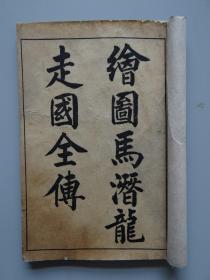 繪圖馬潛龍
走國全傳